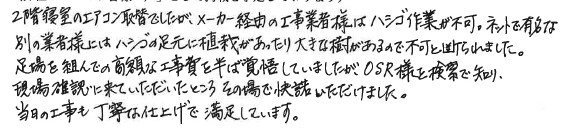 2階寝室のエアコン取替でしたが、メーカー経由の工事業者様はハシゴ作業が不可。ネットで有名な
別の業者様にはハシゴの足元に植栽があったり大きな樹があるので不可と断られました。
足場を組んでの高額な工事費を半ば覚悟していましたが、OSR様を検索で知り、
現場確認に来ていただいたところ その場で快諾いただけました。
当日の工事も丁寧な仕上げで満足しています。